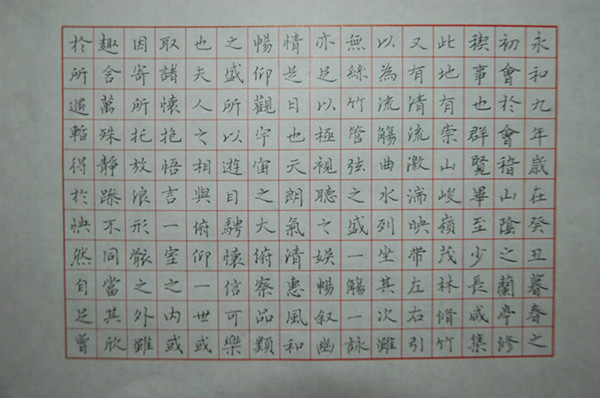 永和九年歲在癸丑暮春之
初會於會稽山陰之蘭亭修
禊事也群賢畢至少長咸集
此地有崇山峻嶺茂林脩竹
又有清流激湍映帶左右引
以為流觴曲水列坐其次雖
無絲竹管弦之盛一觴一詠
亦足以極視聽之娛暢叙幽
情是日也天朗氣清惠風和
暢仰觀宇宙之大俯察品類
之盛所以遊目騁懷信可樂
也夫人之相與俯仰一世或
取諸懷抱悟言一室之內或
因寄所托放浪形骸之外雖
趣舍萬殊靜躁不同當其欣
於所遇暫得於怏然自足曾